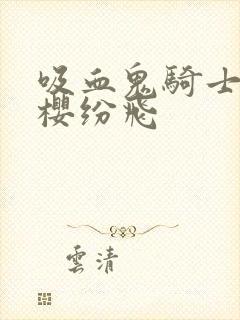 吸血鬼騎士
櫻紛飛
雲清